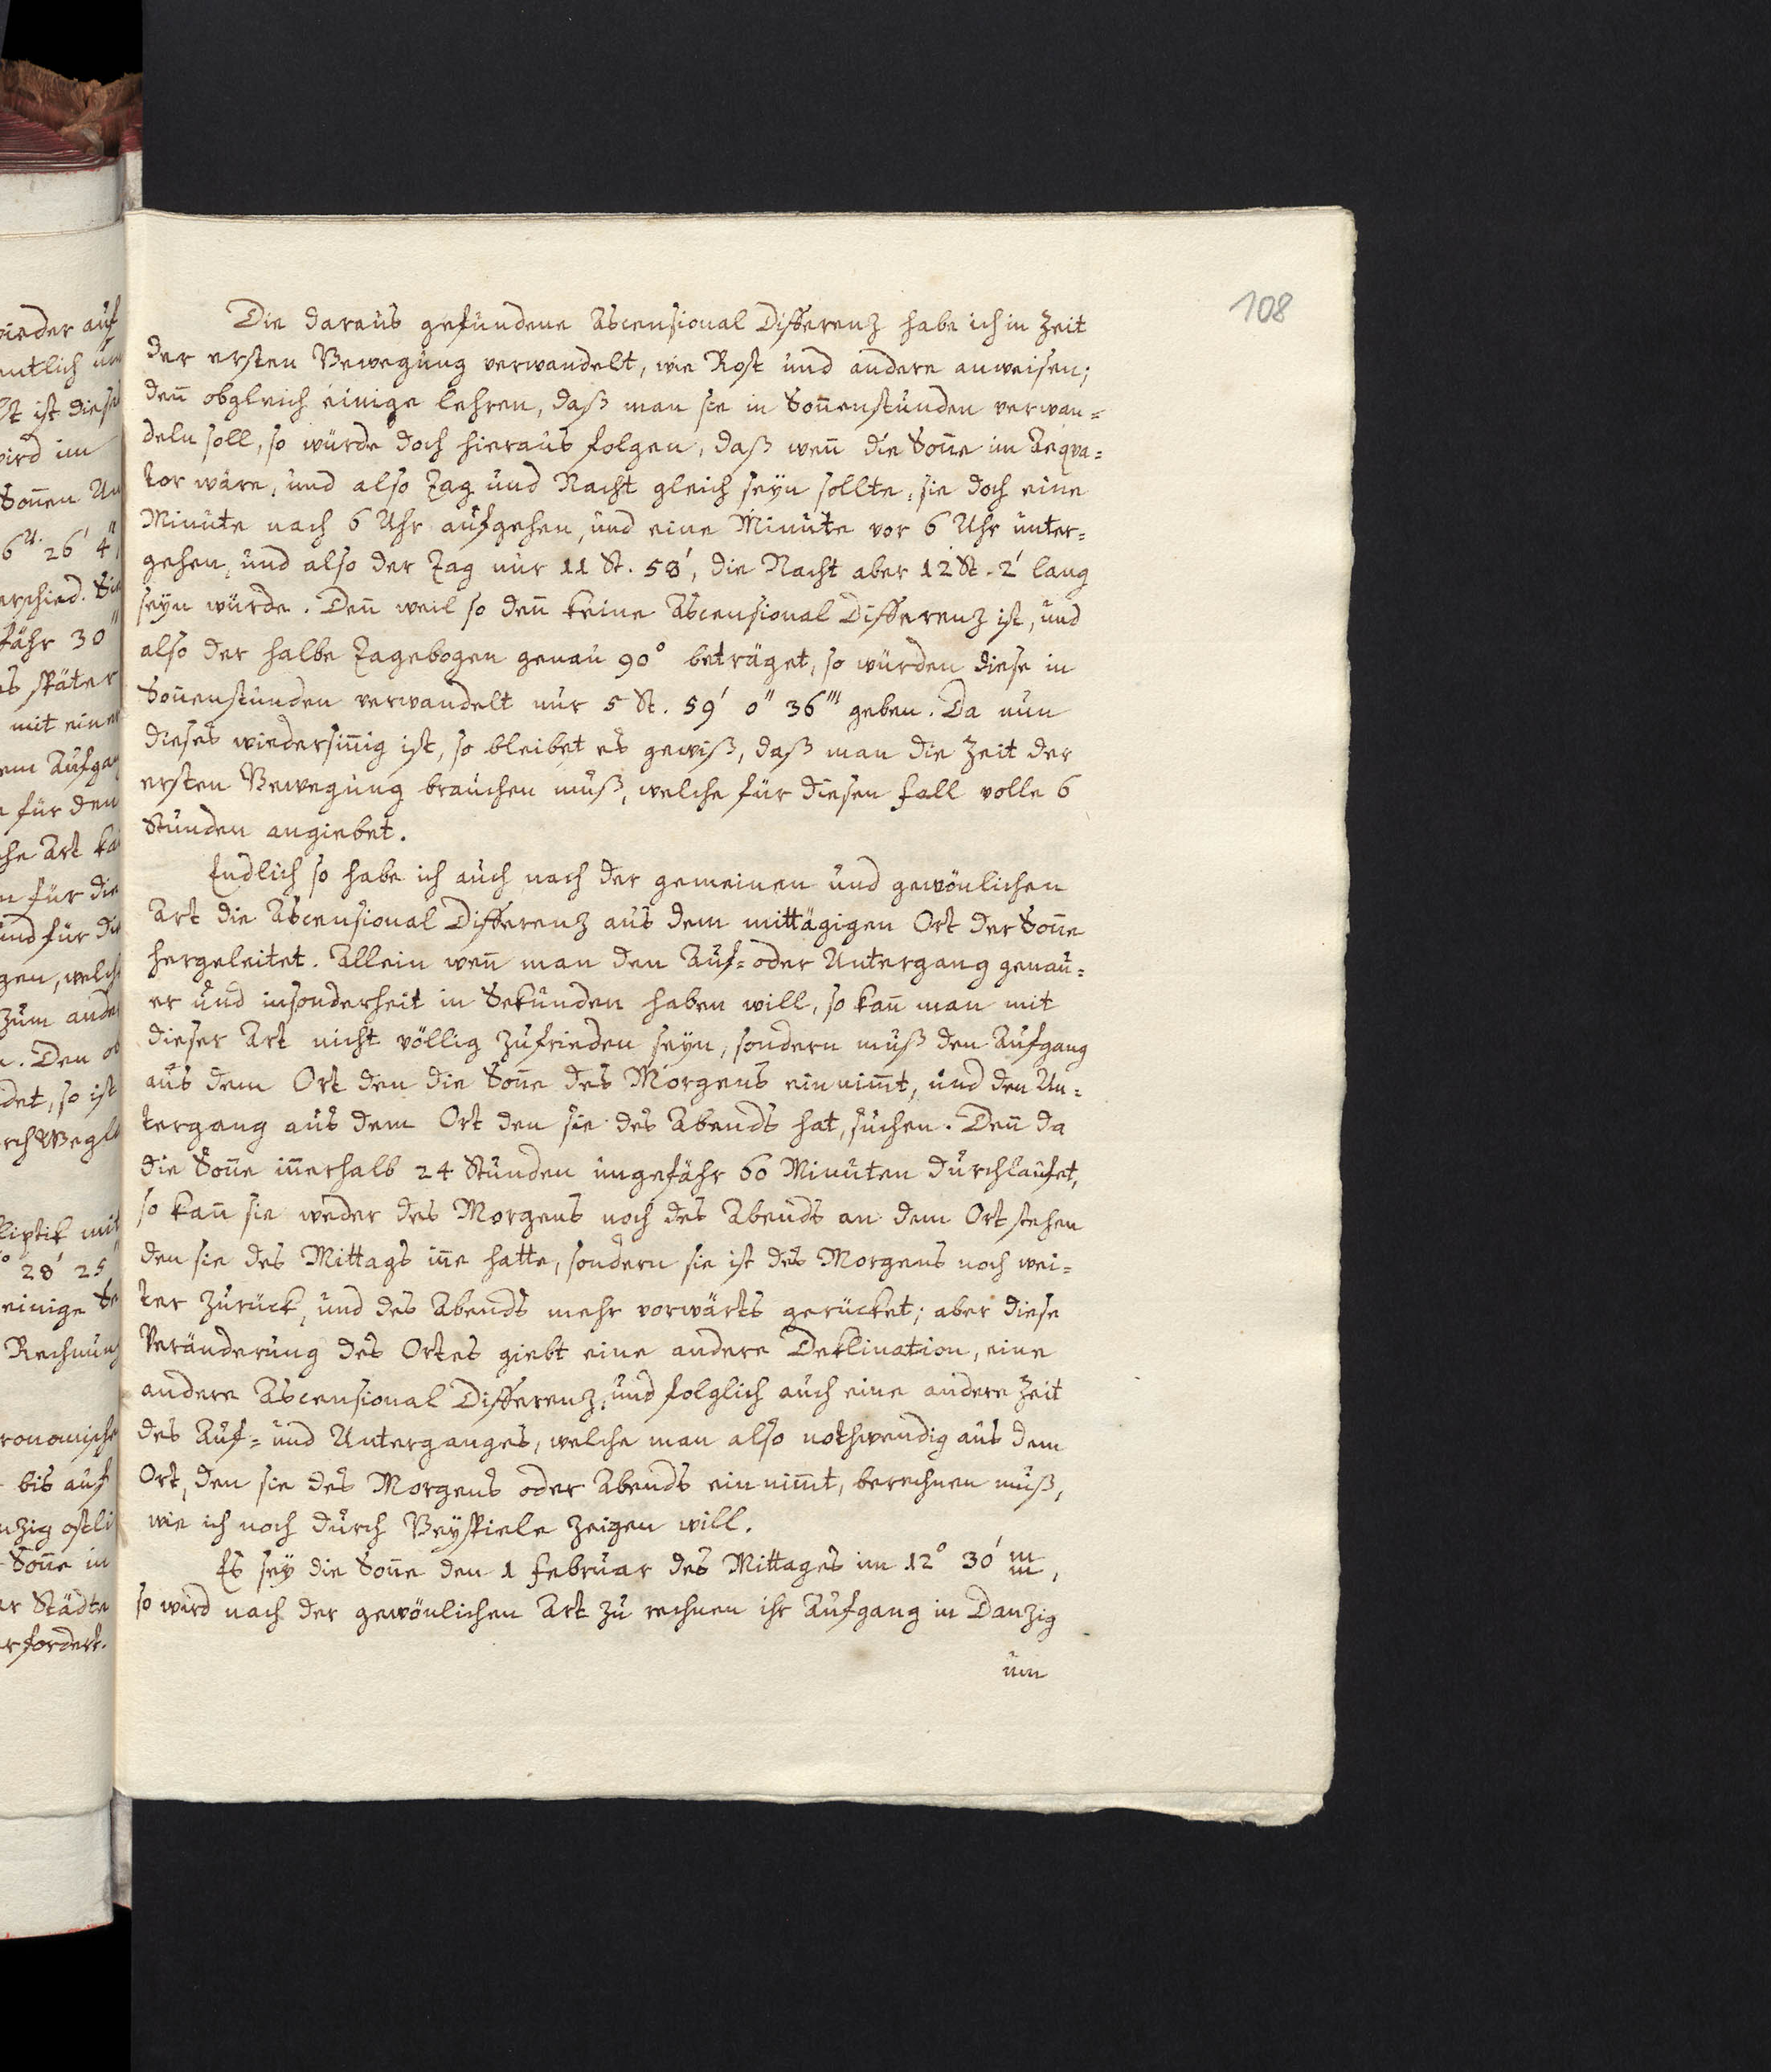 108
Die daraus gefundene Ascensional Differenz habe ich in Zeit
der ersten Bewegung verwandelt, wie Rost und andere anweisen;
deñ obgleich einige lehren, daß man sie in Soñenstunden verwan=
deln soll, so würde doch hieraus folgen, daß weñ die Soñe im Aeqva=
tor wäre, und also Tag und Nacht gleich seyn sollte, sie doch eine
Minute nach 6 Uhr aufgehen, und eine Minute vor 6 Uhr unter=
gehen, und also der Tag nur 11 St. 58′, die Nacht aber 12 St. 2′ lang
seyn würde. Deñ weil so deñ keine Ascensional Differenz ist, und
also der halbe Tagebogen genau 90° beträget, so würden diese in
Soñenstunden verwandelt nur 5 St. 59′ 0″ 36‴ geben. Da nun
dieses wiedersiñig ist, so bleibet es gewiß, daß man die Zeit der
ersten Bewegung brauchen muß, welche für diesen Fall volle 6
Stunden angiebet.
Endlich so habe ich auch nach der gemeinen und gewönlichen
Art die Ascensional Differenz aus dem mittägigen Ort der Soñe
hergeleitet. Allein weñ man den Auf= oder Untergang genau=
er und insonderheit in Sekunden haben will, so kañ man mit
dieser Art nicht völlig zufrieden seyn, sondern muß den Aufgang
aus dem Ort den die Soñe des Morgens einnim̃t, und den Un=
tergang aus dem Ort den sie des Abends hat, suchen. Deñ da
die Soñe iñerhalb 24 Stunden ungefähr 60 Minuten durchlaufet,
so kañ sie weder des Morgens noch des Abends an dem Ort stehen
den sie des Mittags iñe hatte, sondern sie ist des Morgens noch wei=
ter zurück, und des Abends mehr vorwärts gerücket; aber diese
Veränderung des Ortes giebt eine andere Deklination, eine
andere Ascensional Differenz, und folglich auch eine andere Zeit
des Auf= und Unterganges, welche man also nothwendig aus dem
Ort, den sie des Morgens oder Abends einnim̃t, berechnen muß,
wie ich noch durch Beyspiele zeigen will.
Es sey die Soñe den 1 Februar des Mittages im 12° 30′ ♒,
so wird nach der gewönlichen Art zu rechnen ihr Aufgang in Danzig
um